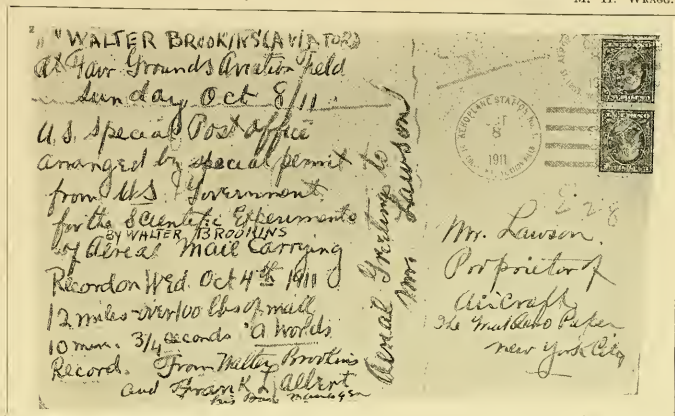 M. H. WRAGG.
"WALTER BROOKINS (AVIATOR)
at Fair Grounds Aviation field
Sunday Oct 8/11
U.S. special Post office
arranged by special permit
from U.S. Government
for the Scientific Experiments
BY WALTER BROOKINS
of Aereal Mail Carrying
Record on Wed. Oct 4th 1911
12 miles - over 100 lbs of mail
10 min. 3/4 seconds a Words
Record. From Walter Brookins
and Frank L Albert
his Bus Manager
Aereal Greeting to
Mr. Lawson
AEROPLANE STATION No. 1.
8
1911
Mr. Lawson.
Proprietor of
AirCraft
The Aero Paper
New York City